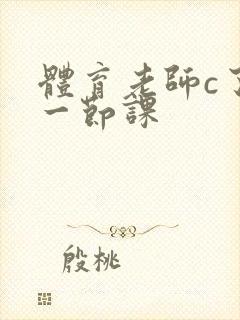 體育老師c了
一節課
殷桃